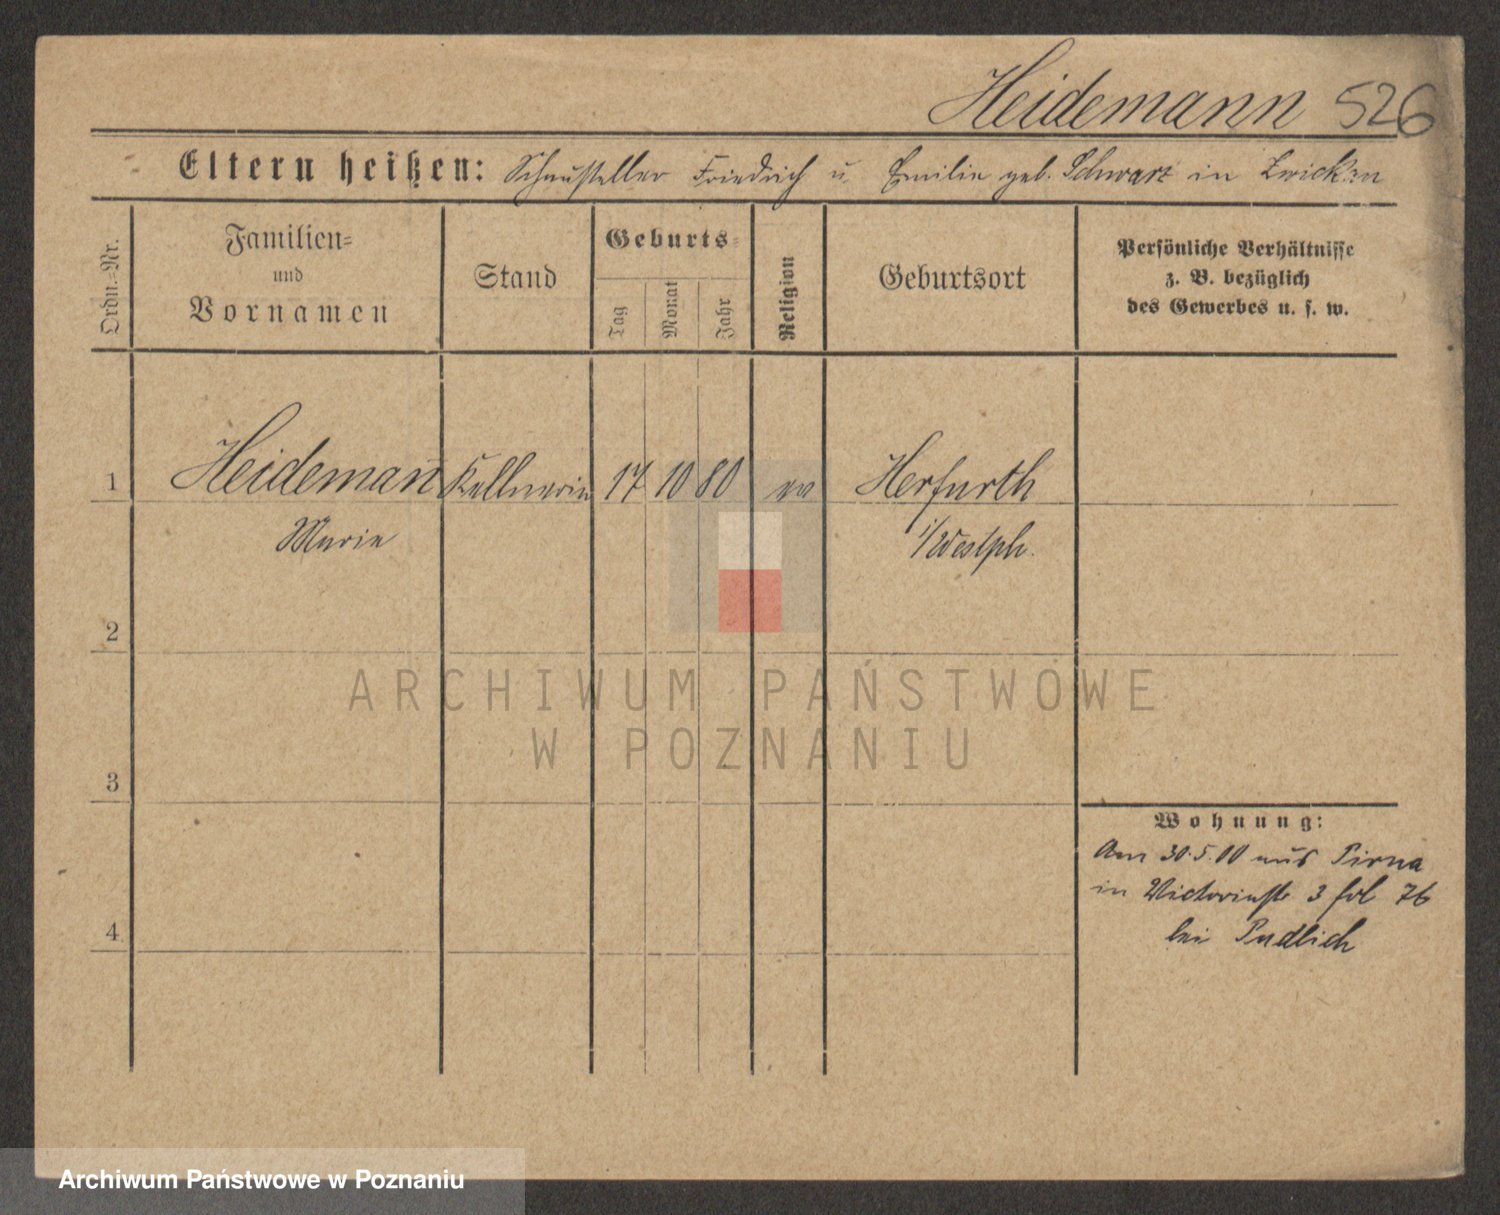 Heidemann 526
Eltern heißen: Schausteller Friedrich u. Emilie geb. Schwarz in Zwickau
Ordn.-Nr.
Familien-
und
Vornamen
Stand
Geburts-
Tag
Monat
Jahr
Religion
Geburtsort
Persönliche Verhältnisse
z. B. bezüglich
des Gewerbes u. s. w.
1 Heidemann Kellnerin 17 10 80 ev Herfurth
Marie i/Westph.
2
ARCHIWUM PAŃSTWOWE
W POZNANIU
3
Wohnung:
Am 30.5.00 aus Pirna
in Victoriastr 3 fol 76
4
bei Pudlich
Archiwum Państwowe w Poznaniu